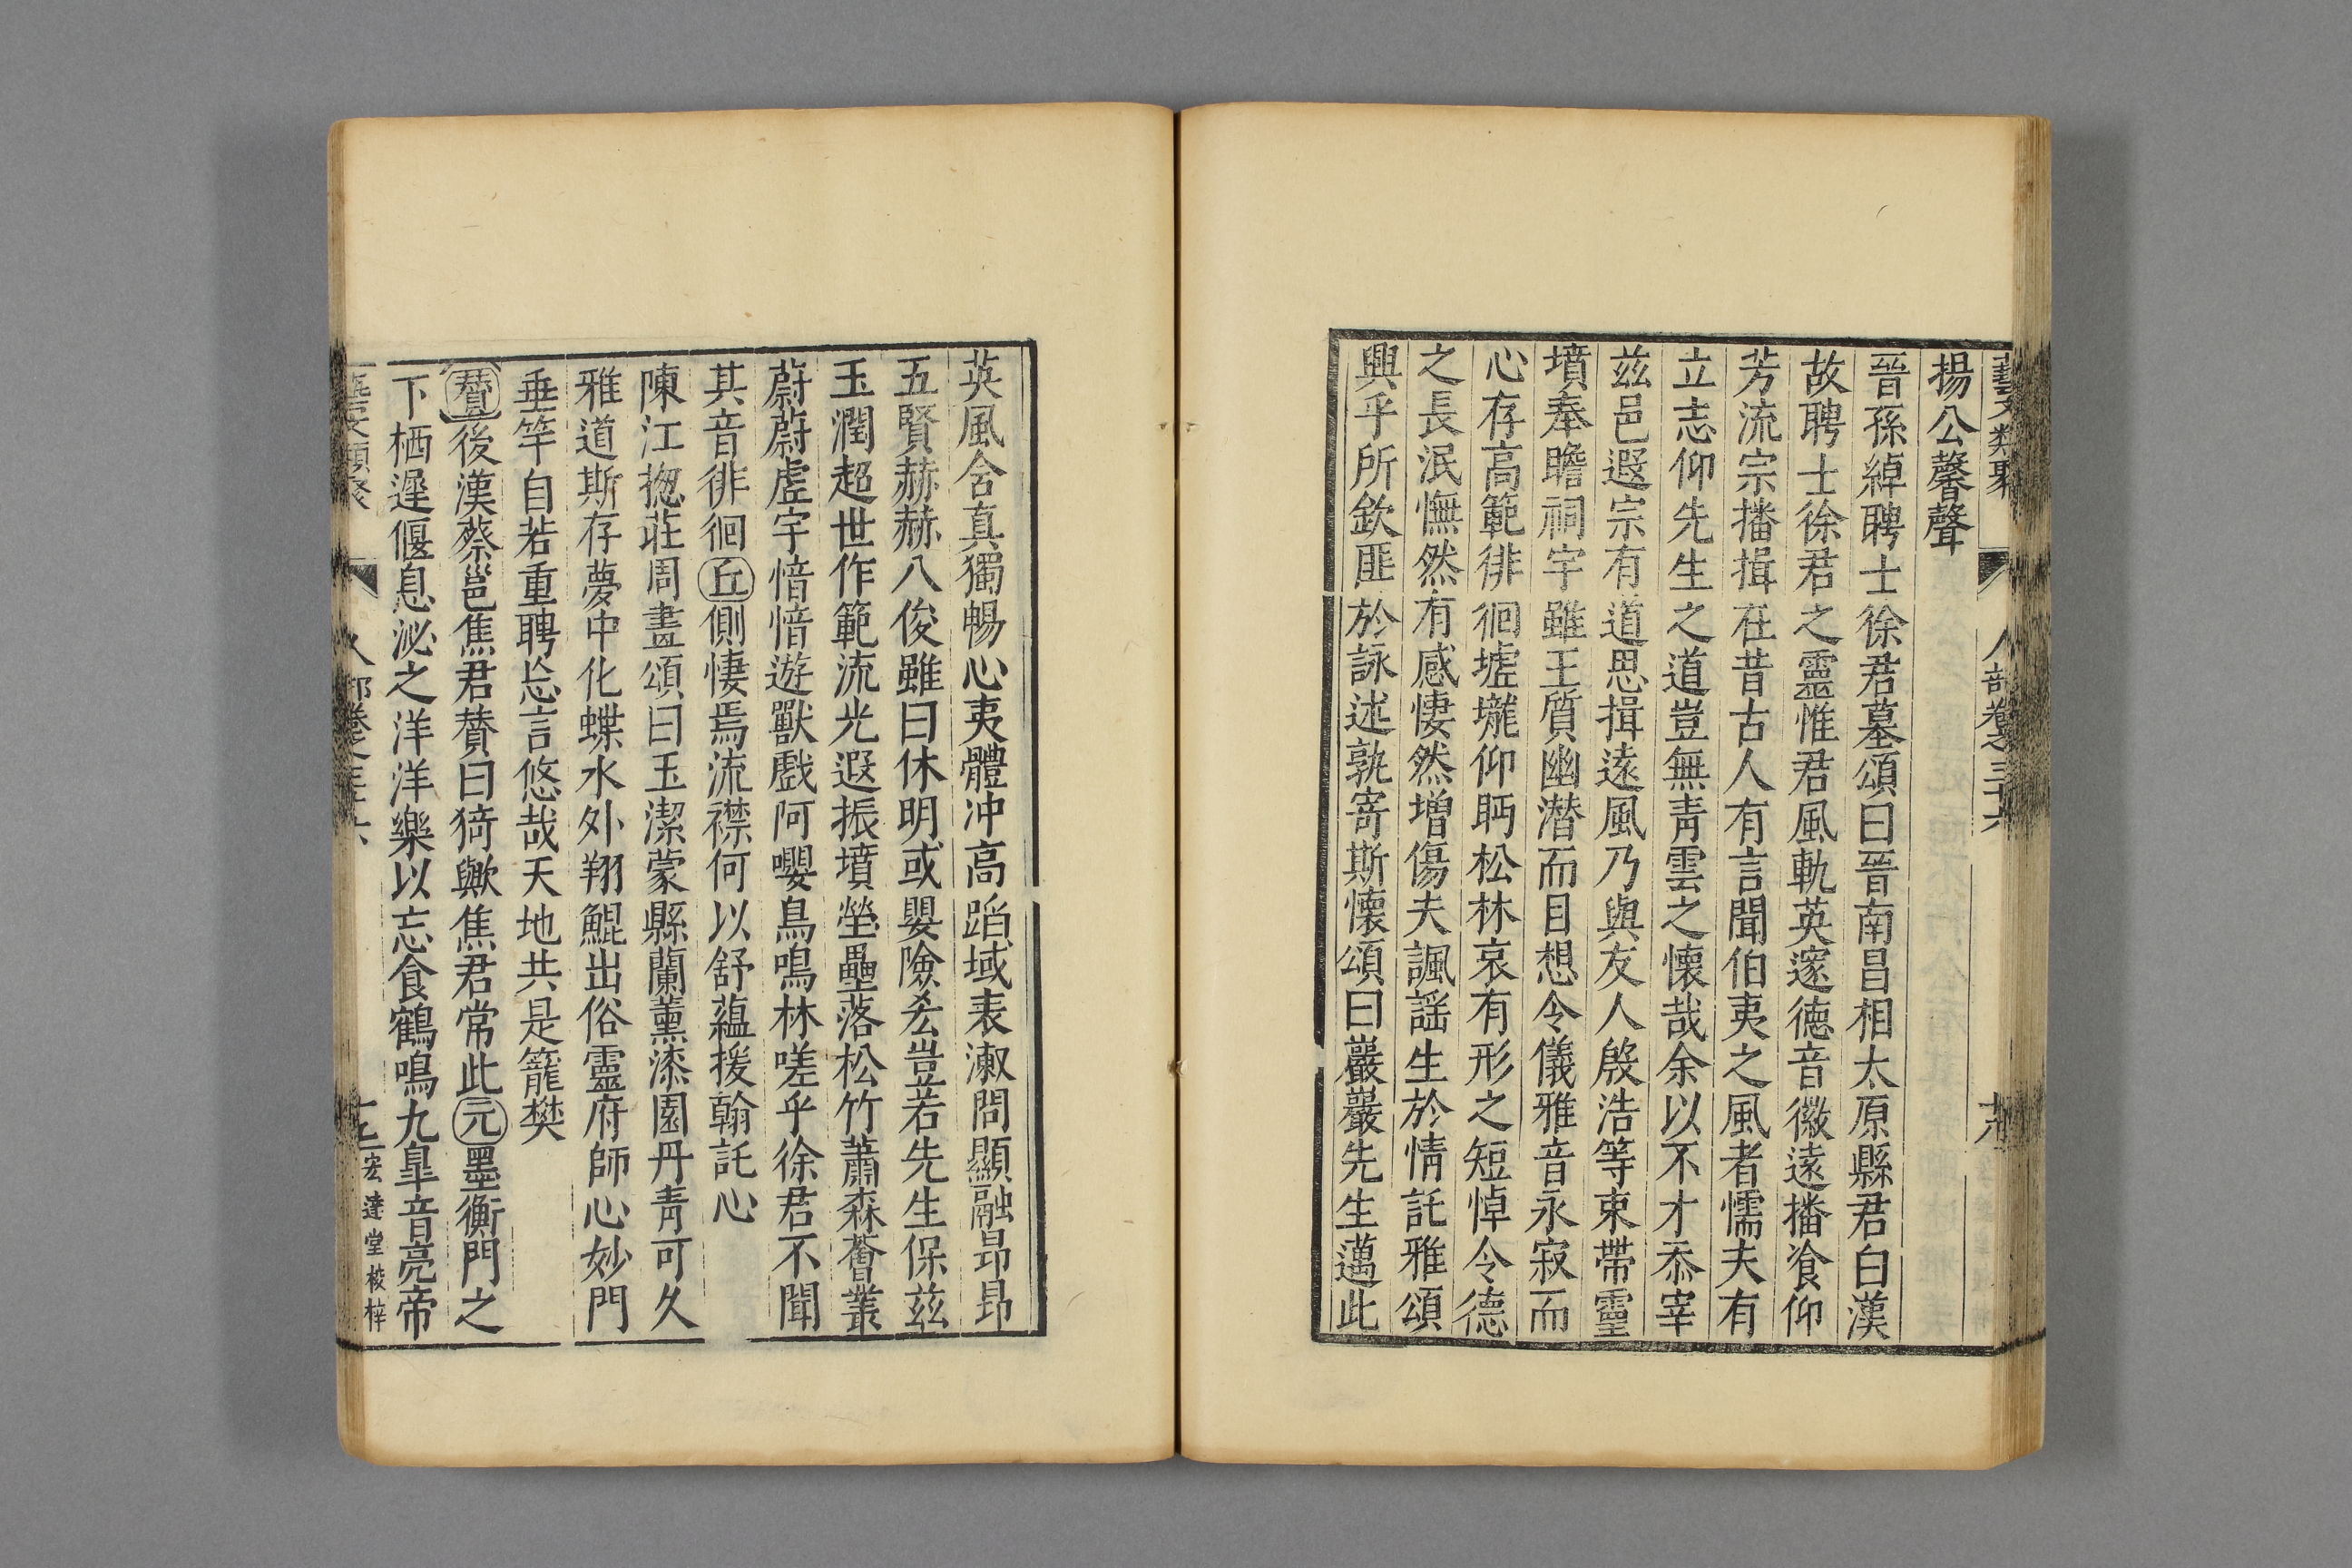 藝文類聚 人部卷之三十六
揚公馨聲
晉孫綽聘士徐君墓頌曰晉南昌相太原縣君白漢
故聘士徐君之靈惟君風軌英邃德音徽遠播飡仰
芳流宗播揖在昔古人有言聞伯夷之風者懦夫有
立志仰先生之道豈無青雲之懷哉余以不才忝宰
茲邑遐宗有道思揖遠風乃與友人殷浩等束帶靈
墳奉瞻祠宇雖王質幽潛而目想令儀雅音永寂而
心存高範徘徊墟壠仰眄松林哀有形之短悼令德
之長泯憮然有感悽然增傷夫諷謡生於情託雅頌
興乎所欽匪於詠述孰寄斯懷頌曰巖巖先生邁此
英風含真獨暢心夷體冲高蹈域表淑問顯融昂昂
五賢赫赫八俊雖曰休明或嬰險𠫤豈若先生保茲
玉潤超世作範流光遐振墳塋壘落松竹蕭森薈叢
蔚蔚虛宇愔愔遊獸戲阿嚶鳥鳴林嗟乎徐君不聞
其音徘徊丘側悽焉流襟何以舒蘊援翰託心
陳江揔莊周畫頌曰玉潔蒙縣蘭薰漆園丹靑可久
雅道斯存夢中化蝶水外翔鯤出俗靈府師心妙門
垂竿自若重聘忘言悠哉天地共是籠樊
贊後漢蔡邕焦君贊曰猗歟焦君常此元墨衡門之
下栖遲偃息泌之洋洋樂以忘食鶴鳴九臯音亮帝
藝文類聚 人部卷之三十六 宏達堂校梓